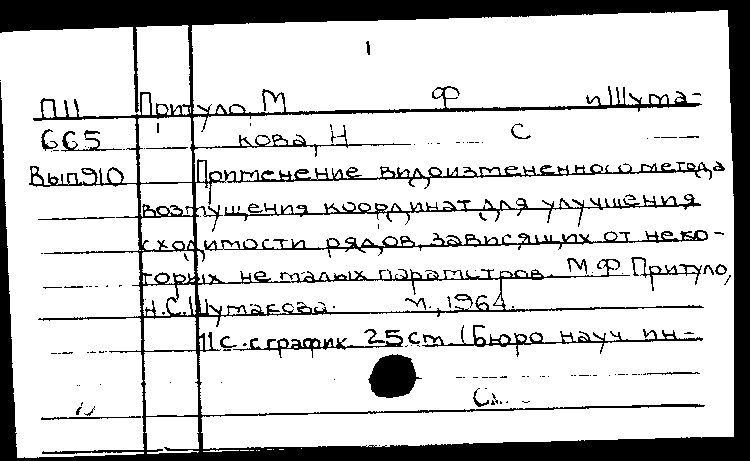 1
П11 Притуло, М Ф и Шума-
665 кова, Н С
Вып910 Применение видоизмененного метода
возмущения координат для улучшения
сходимости рядов, зависящих от неко-
торых не малых параметров. М.Ф Притуло,
Н.С.Шумакова. М., 1964.
11 с. с график. 25 см. (Бюро науч. ин-
См.